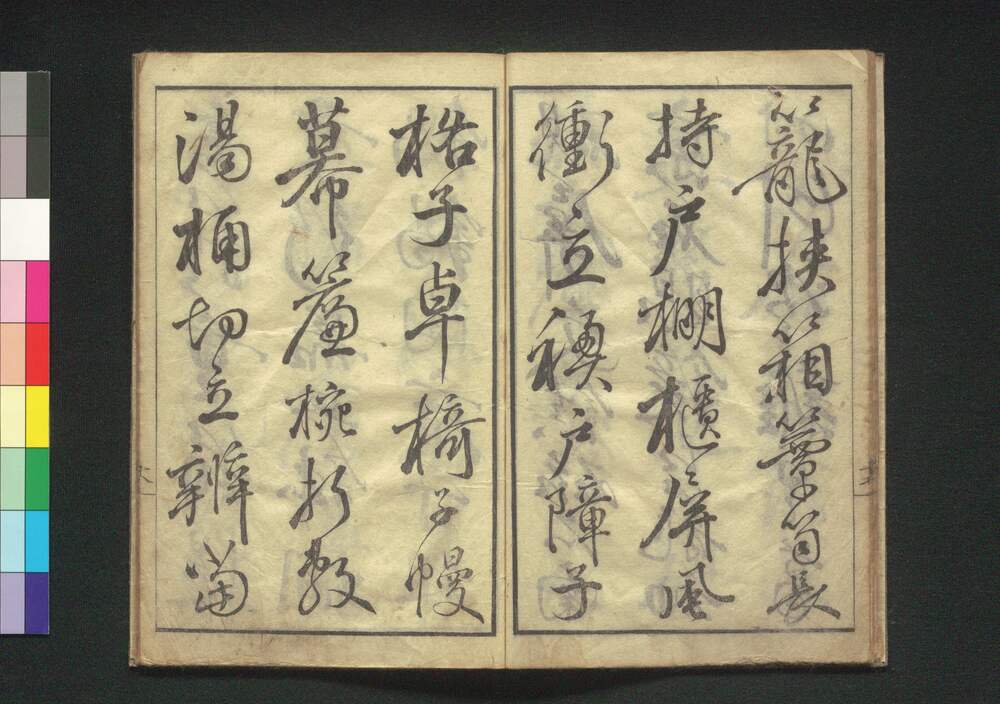 籠挾箱簞笥長
持戸棚櫃屏風
衝立襖戸障子
格子卓椅子幔
幕簾椀折敷
湯桶切立辨當